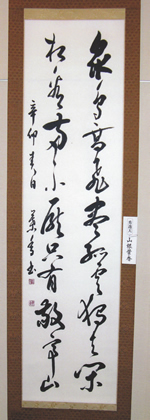 衆鳥高飛盡孤雲独去閑
相看両不厭只有敬亭山
辛卯春日
香書
山根 香